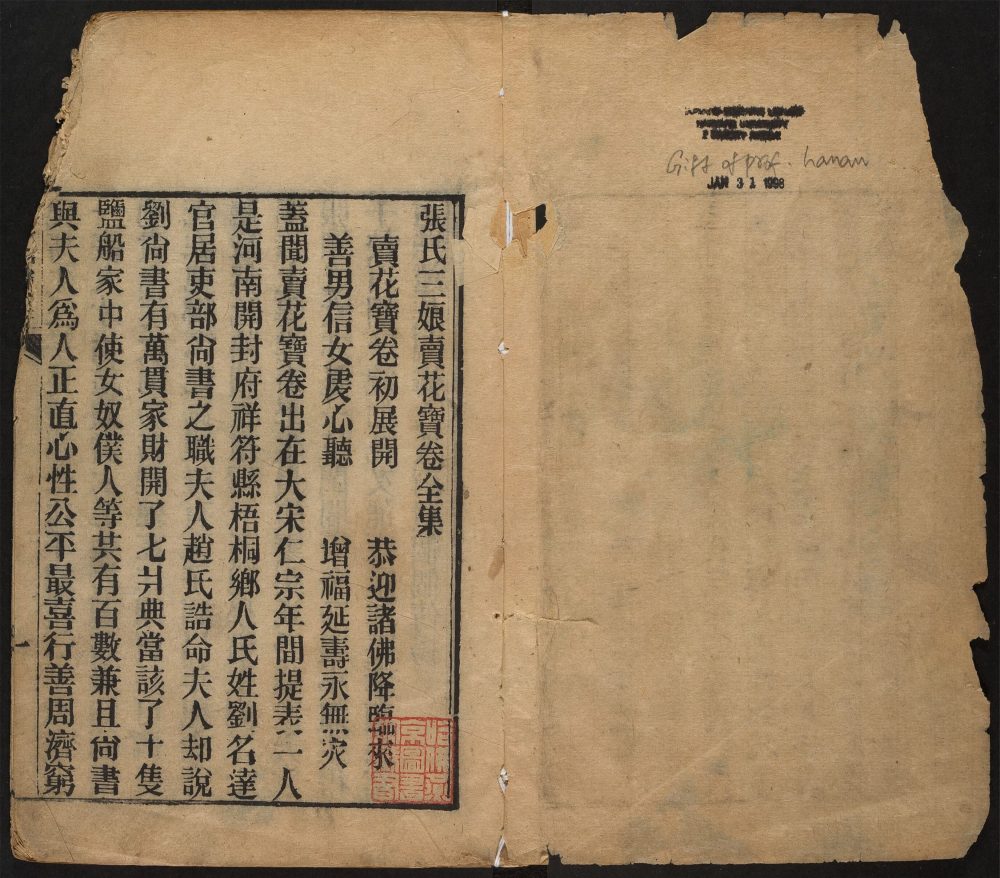 張氏三娘賣花寶卷全集
賣花寶卷初展開　恭迎諸佛降臨來
善男信女虔心聽　增福延壽永無災
蓋聞賣花寶卷出在大宋仁宗年間提表一人
是河南開封府祥符縣梧桐鄉人氏姓劉名達
官居吏部尙書之職夫人趙氏誥命夫人却說
劉尙書有萬貫家財開了七爿典當該了十隻
鹽船家中使女奴僕人等共有百數兼且尙書
與夫人爲人正直心性公平最喜行善周濟窮
Gift of prof. Hanan
JAN 31 1998